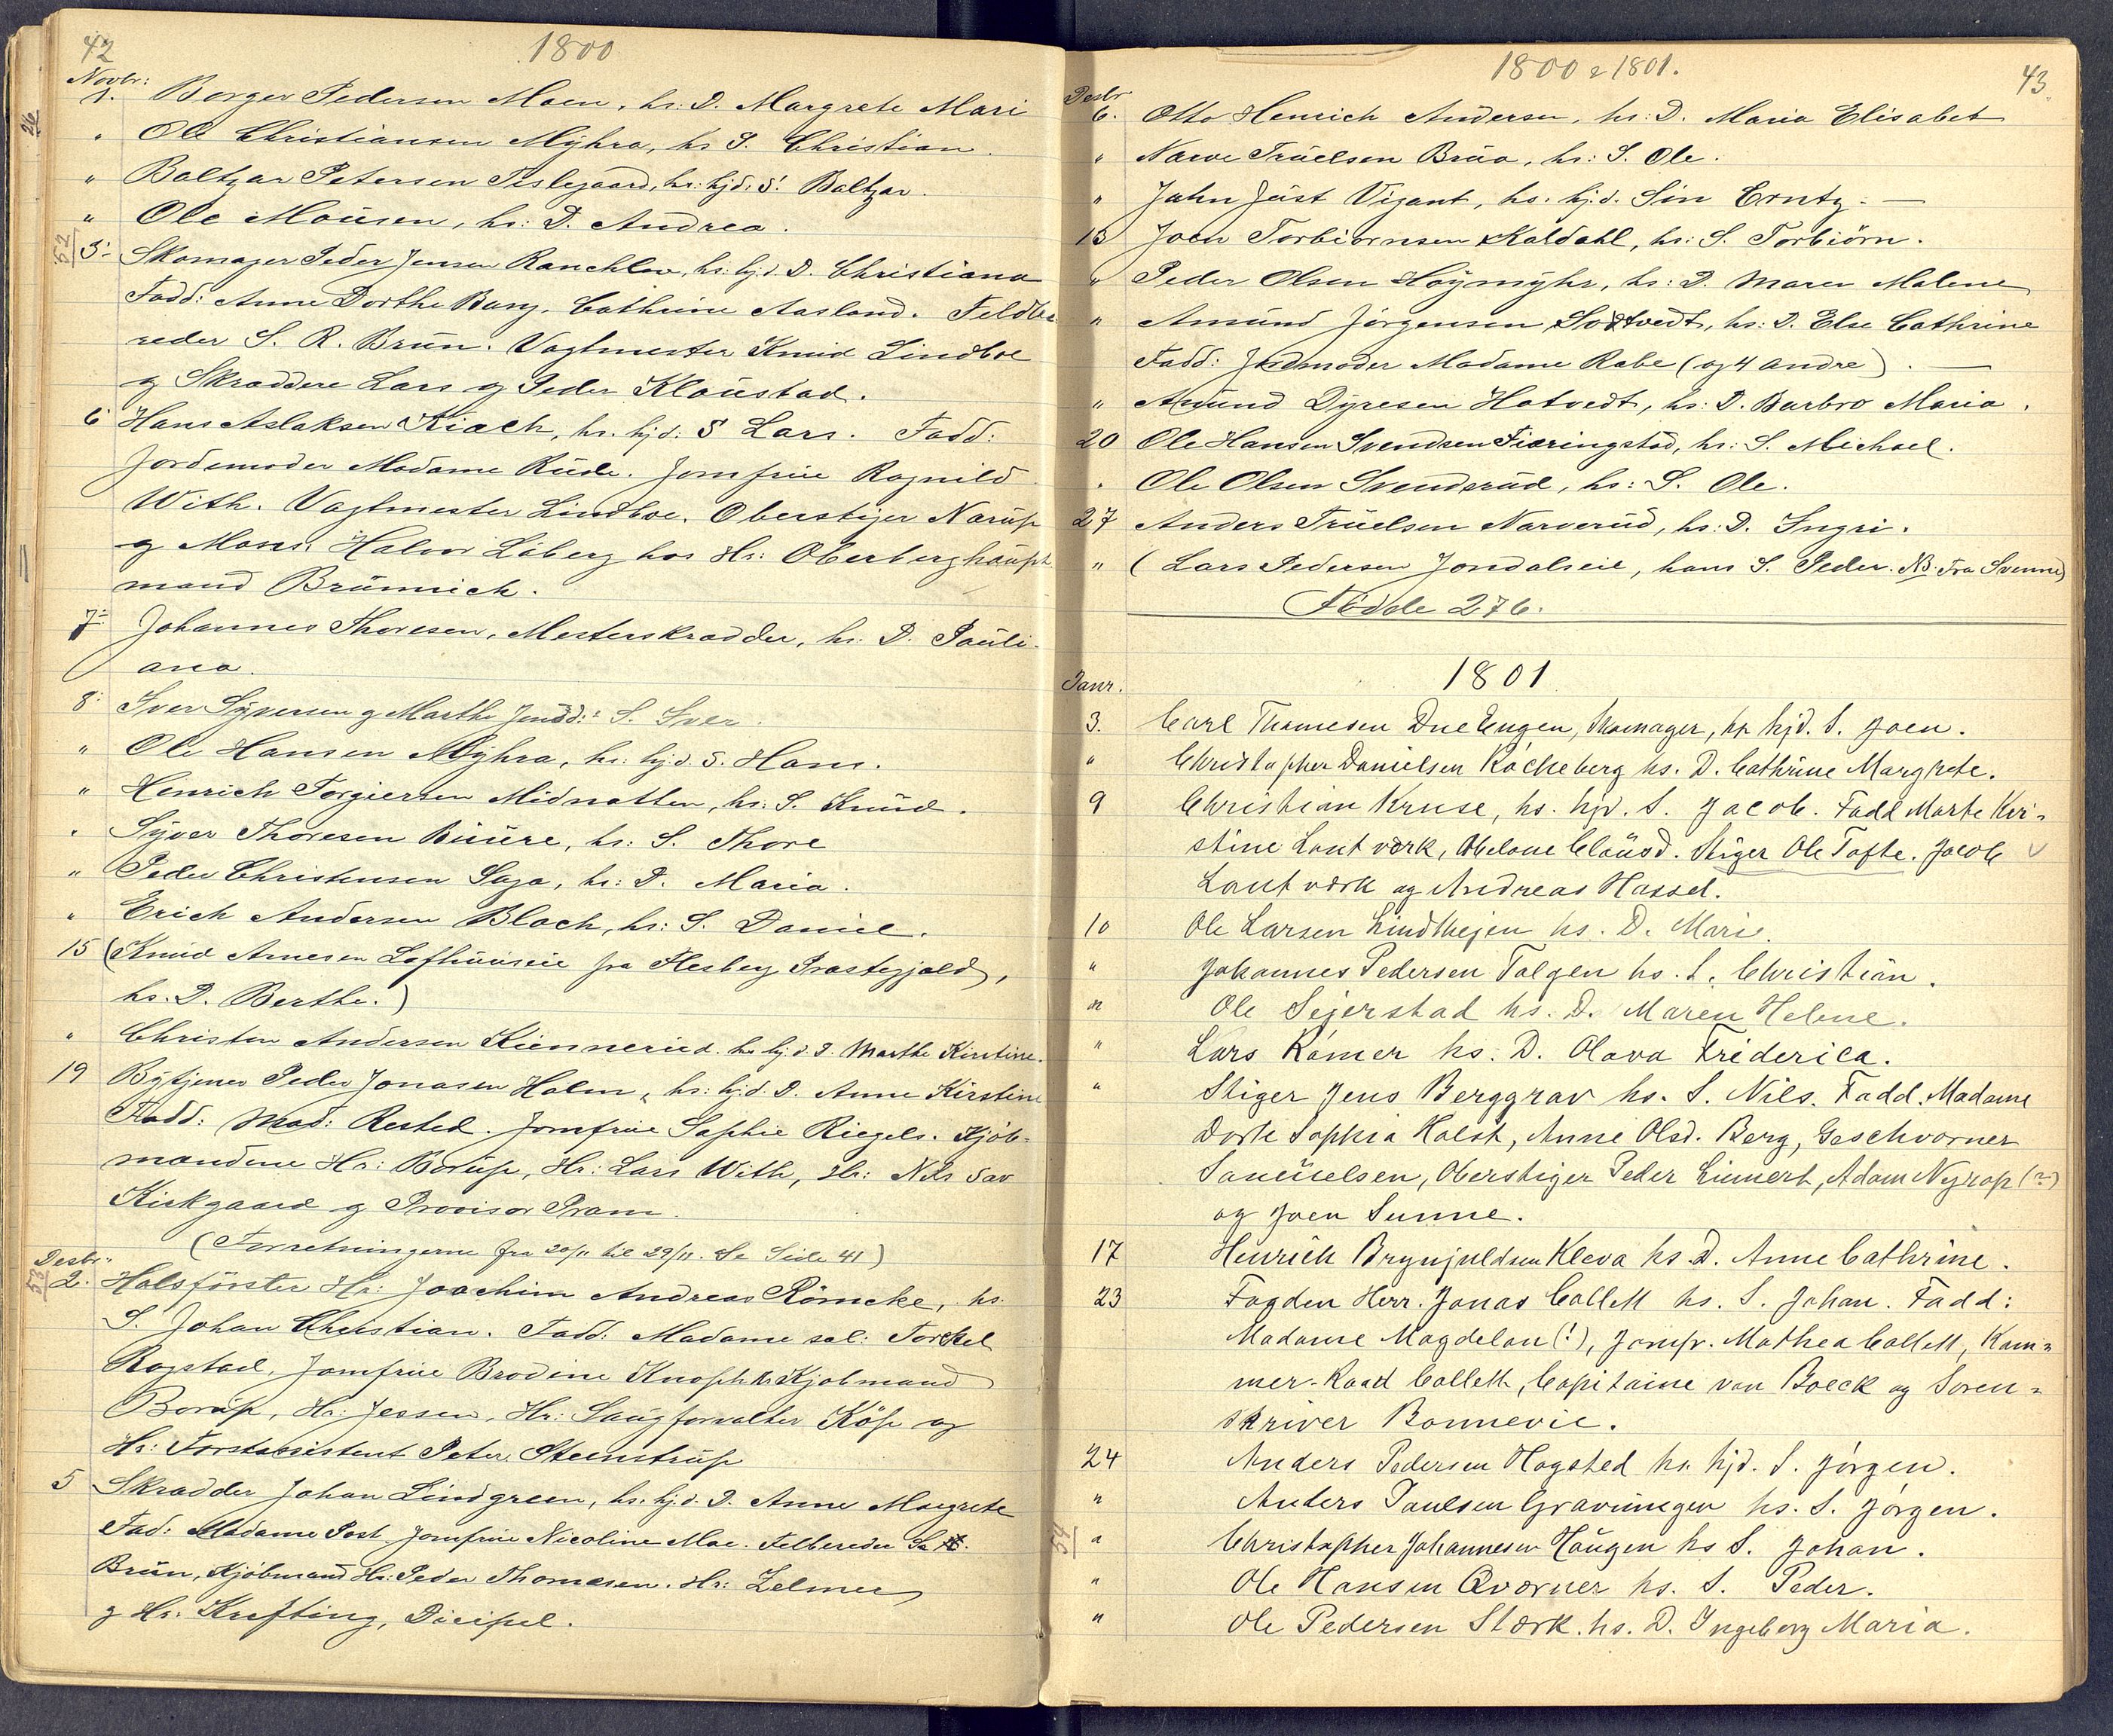 42
1800
Novbr:
1. Borger Pedersen Moen, hs: D. Margrete Mari
" Ole Christiansen Myhra, hs S. Christian.
" Baltzar Petersen Teslegaard, hs: hjd: S. Baltzar.
" Ole Mousen, hs: D. Andrea.
52
5: Skomager Peder Jensen Ranchlev, hs: hj.d. D. Christiana
Fadd: Anne Dorthe Barg, Cathrine Aasland. Feldbe
reder S. R. Brün. Vagtmester Knud Lindboe
og Skræddere Lars og Peder Kloustad.
6 Hans Aslaksen Kiach, hs. hjd: S Lars. Fadd:
Jordemoder Madame Rude. Jomfrue Ragnild
With. Vagtmester Lindboe. Oberstiger Narup
og Mons. Halvor Løberg hos Hr: Oberberghaupt
mand Brünnich.
7: Johannes Thoresen, Mesterskrædder, hs: D. Pauli-
ana.
8: Iver Syversen og Marthe Jensd: S. Iver.
" Ole Hansen Myhra, hs: hj.d. S. Hans.
" Henrich Torgiersen Midnatten, hs: S. Knud.
" Syver Thoresen Buure, hs: S. Thore
" Peder Christensen Saga, hs: D. Maria.
" Erich Andersen Bloch, hs: S. Daniel.
15 (Knud Arnesen Lofthuuseie fra Flesberg Præstegjæld,
hs. D. Berthe.)
" Christen Andersen Kiennerud. hs hj.d. D. Marthe Kirstine.
19 Bytjener Peder Jonasen Holm, hs: hj.d. D. Anne Kirstine
Fadd: Mad: Rested. Jomfrue Sophie Riegels. Kjöb-
mændene Hr: Borup, Hr: Lars With, Hr: Nils Sav
Kirkgaard og Provisor Pram.
(Forretningerne fra 20/11 til 29/11. Se Side 41)
Desbr:
53
2. Holsförster Hr: Joachim Andreas Römcke, hs.
S. Johan Christian. Fadd: Madame sal: Torckel
Rogstad, Jomfrue Brodine Knoph. Kjøbmand
Borup, Hr: Jessen, Hr: Saugforvalter Köp og
Hr: Forstassistent Peter Steenstrup
5 Skrædder Johan Lindgreen, hs. hj.d. D. Anne Margrete
Fad: Madame Post. Jomfrue Nicoline Moe. Felbereder
Brün, Kjöbmand Hr: Peder Thomæsen. Hr: Zelmer
og Hr: Krefting, Dicipel.
1800 & 1801.
43.
Desbr
6. Otto Henrich Andersen, hs: D. Maria Elisabet
" Narve Truelsen Brua, hs: S. Ole.
" John Just Vigant, hs. hj.d. Sön Erntz. —
13 Joen Torbiörnsen Kaldahl, hs: S. Torbiörn.
" Peder Olsen Höymyhr, hs: D. Maren Malene
" Amund Jörgensen Sodtvedt, hs: D. Else Cathrine
Fadd: Jordmoder Madame Rabe (og 4 andre). —
" Amund Dyresen Hotvedt, hs: D. Barbro Maria.
20 Ole Hansen Svendsen Fiæringstad, hs: S. Michael.
" Ole Olsen Svendsrud, hs: S. Ole.
27 Anders Truelsen Narverud, hs: D. Ingri.
" (Lars Pedersen Jondalseie, hans S. Peder. NB. Fra Svenne)
Födde 276.
1801
Janr.
3. Carl Thomesen Due Engen, Skomager, hs hjd. S. Joen.
" Christopher Danielsen Kocheberg hs. D. Cathrine Margrete.
9 Christian Kruse, hs. hjd. S. Jacob. Fadd Marte Kir=
stine Lantværk, Abelone Clausd. Stiger Ole Tofte. Jacob
Lantværk og Andreas Hassel.
10 Ole Larsen Lindthejen hs. D. Mari.
" Johannes Pedersen Tolgen hs. S. Christian.
" Ole Sejerstad hs. D. Maren Helene.
" Lars Rømer hs. D. Olava Friderica.
" Stiger Jens Berggrav hs. S. Nils. Fadd. Madame
Dorte Sophia Holst, Anne Olsd. Berg, Geschvorner
Samuelsen, Oberstiger Peder Einnert, Adam Nyrop (?)
og Joen Sunne.
17 Henrich Brynjuldsen Kleva hs. D. Anne Cathrine.
23 Fogden Herr. Jonas Collett hs. S. Johan. Fadd:
Madame Magdelon (!), Jomfr. Mathea Collett, Kam=
mer-Raad Collett, Capitaine von Boeck og Soren=
skriver Bonnevie.
24 Anders Pedersen Hogsted hs. hjd. S. Jörgen.
" Anders Paulsen Gravningen hs. S. Jörgen.
54
" Christopher Johannesen Haugen hs S. Johan.
" Ole Hansen Qværner hs. S. Peder.
" Ole Pedersen Stærk. hs. D. Ingeborg Maria.